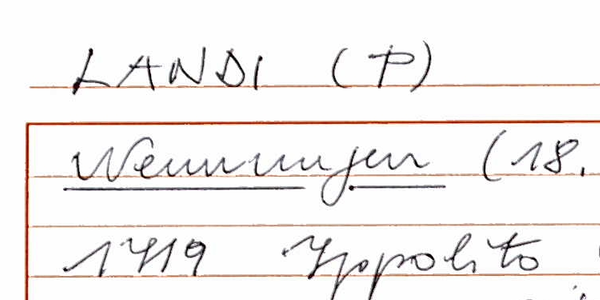 LANDI (P)
Wemmingen (18.
1719 Ippolito (